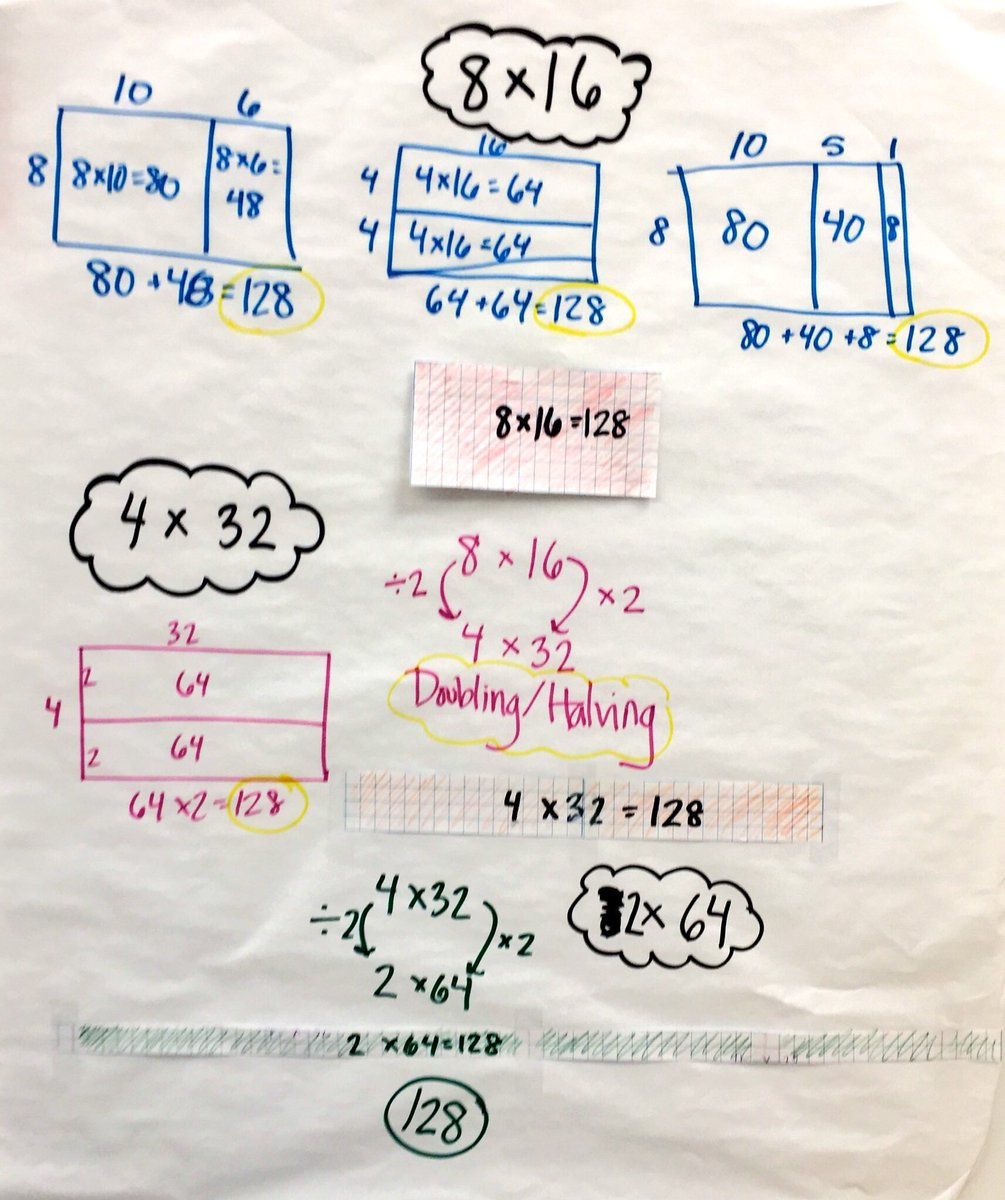 8×16
10 6
8 8×10=80 8×6=
48
80+48=128
16
4 4×16=64
4 4×16=64
64+64=128
10 5 1
8 80 40 8
80+40+8=128
8×16=128
4 × 32
÷2 8 × 16 ×2
4 × 32
Doubling/Halving
32
2 64
4
2 64
64×2=128
4 ×32 = 128
÷2 4×32 ×2
2 ×64
2× 64
2 ×64=128
128